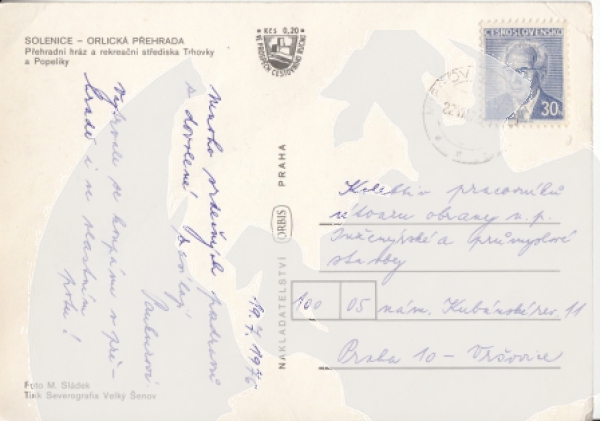 SOLENICE – ORLICKÁ PŘEHRADA
Přehradní hráz a rekreační střediska Trhovky
a Popelíky
Kčs 0,20
VE PROSPĚCH CESTOVNÍHO RUCHU
ČESKOSLOVENSKO
30h
22.VII
Mnoho srdečných pozdravů
z dovolené posílají
Vytrvale se koupáme v pře-
hradě i ve vlastním
potu!
19.7.1976
NAKLADATELSTVÍ ORBIS PRAHA
Kolektiv pracovníků
útvaru obrany n.p.
Inženýrské a průmyslové
stavby
100 05 nám. Kubánské rev. 11
Praha 10 – Vršovice
Foto M. Sládek
Tisk Severografia Velký Šenov